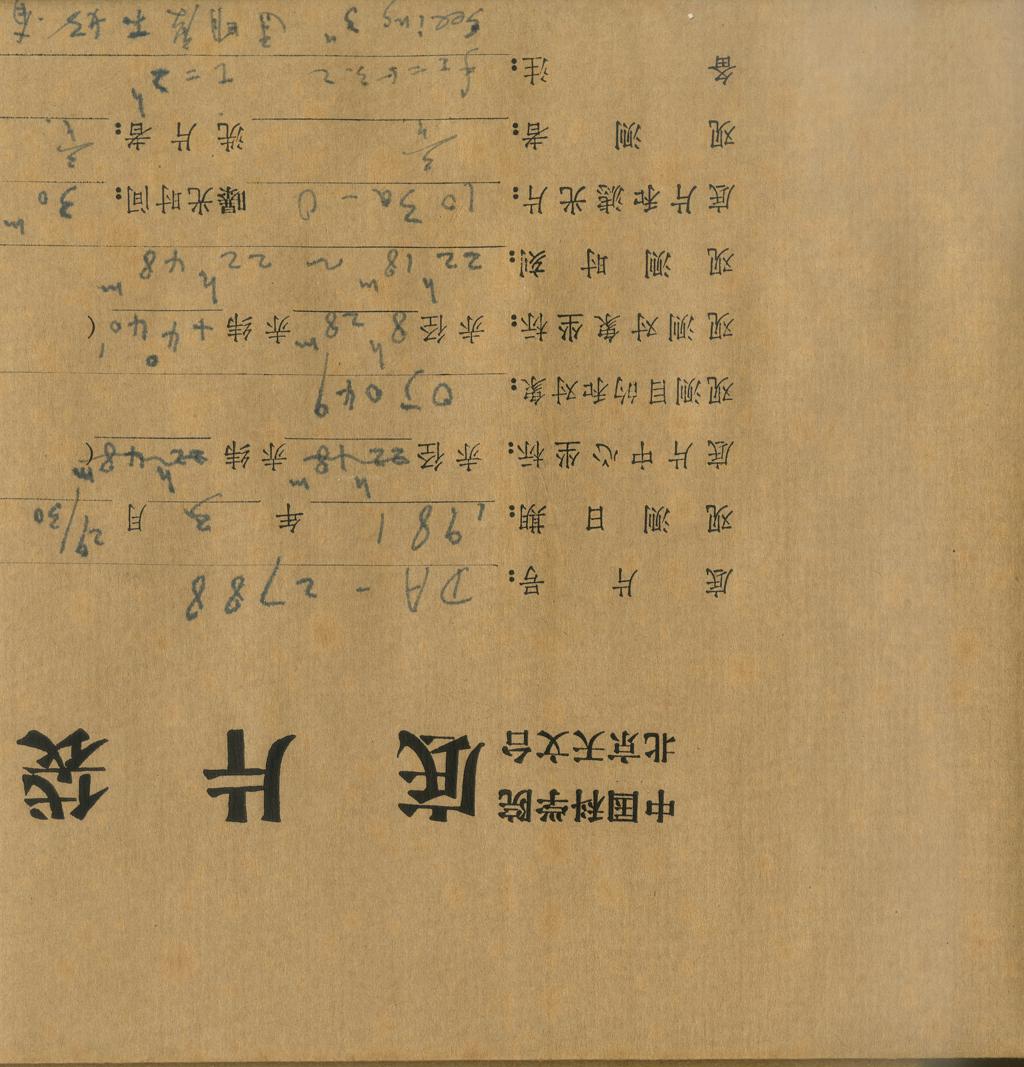 中国科学院
北京天文台 底片袋
底片号: DA-2788
观测日期: 1981年3月29/30
底片中心坐标: 赤径 22ʰ18ᵐ 赤纬 22ʰ48ᵐ (
观测目的和对象: OJ049
观测对象坐标: 赤径 8ʰ28ᵐ 赤纬 +4°40′ (
观测时刻: 22ʰ18ᵐ ~ 22ʰ48ᵐ
底片和滤光片: 103a-O 曝光时间: 30ᵐ
观测者: 洗片者:
备注: fz=53.2 T=2ʰ
Seeing 3" 透明度不好 有